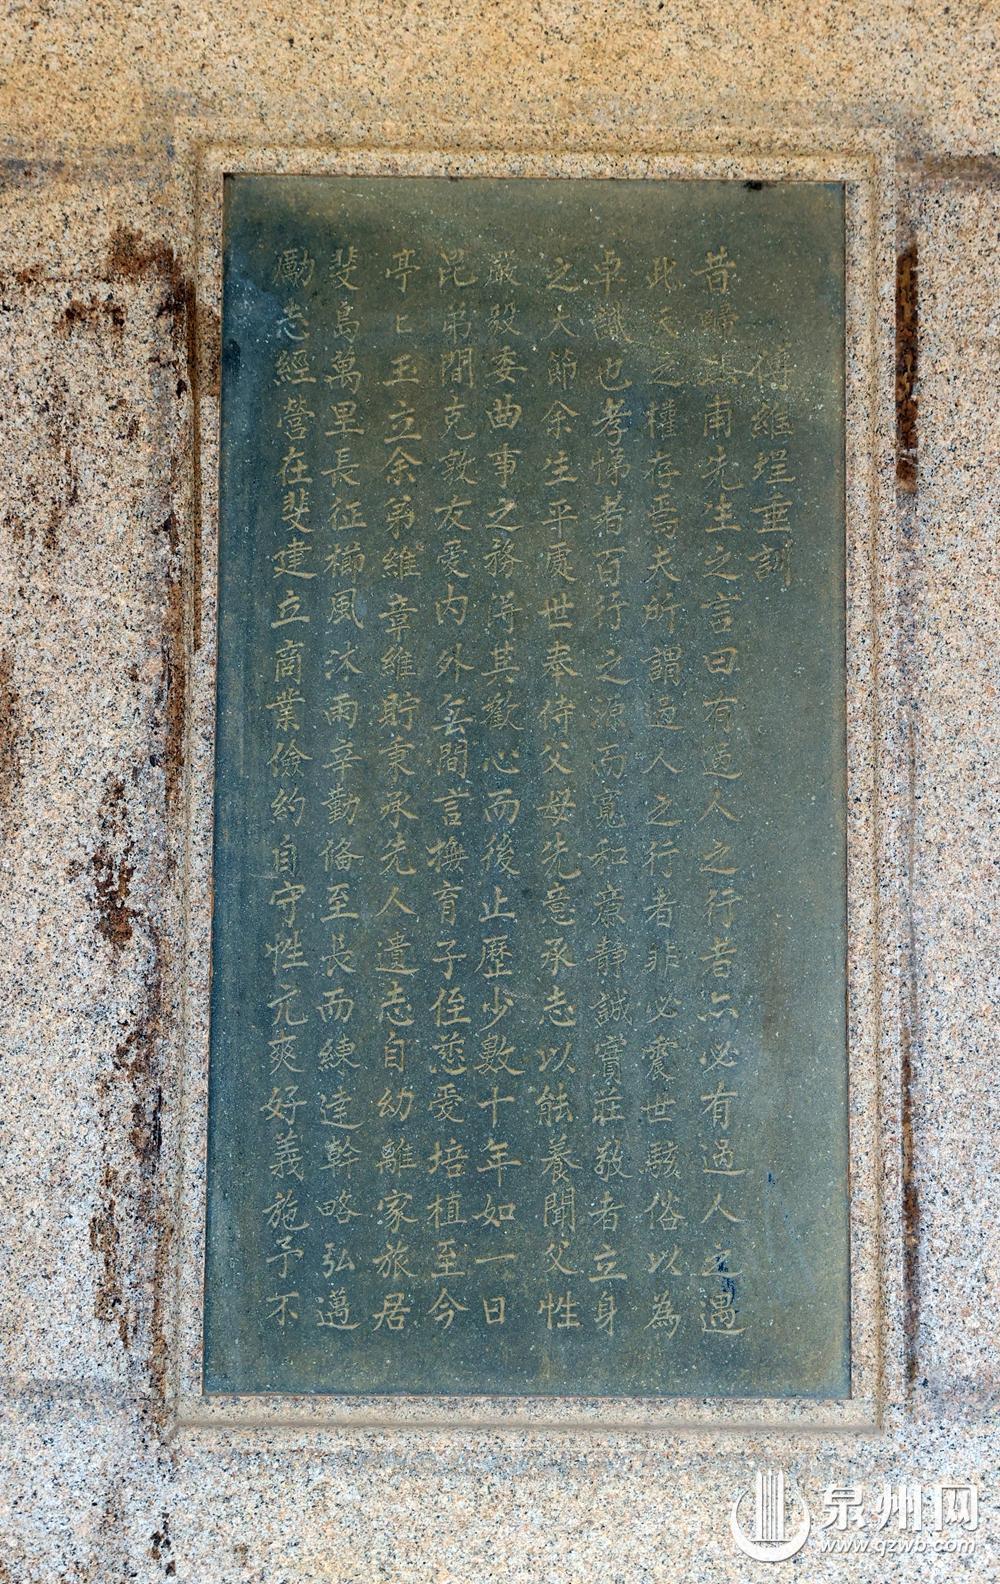 傅維埕垂訓
昔歸熙甫先生之言曰有過人之行者亦必有過人之遇
此天之權存焉夫所謂過人之行者非必震世駭俗以為
卓識也孝悌者百行之源而寬和廉靜誠實莊敬者立身
之大節余生平處世奉侍父母先意承志以能養聞父性
嚴毅委曲事之務得其歡心而後止歷少數十年如一日
昆弟間克敦友愛內外無間言撫育子侄慈愛培植至今
亭匕玉立余弟維章維貯秉承先人遺志自幼離家旅居
斐島萬里長征櫛風沐雨辛勤備至長而練達幹略弘邁
勵志經營在斐建立商業儉約自守性亢爽好義施予不
泉州网
www.qzwb.com